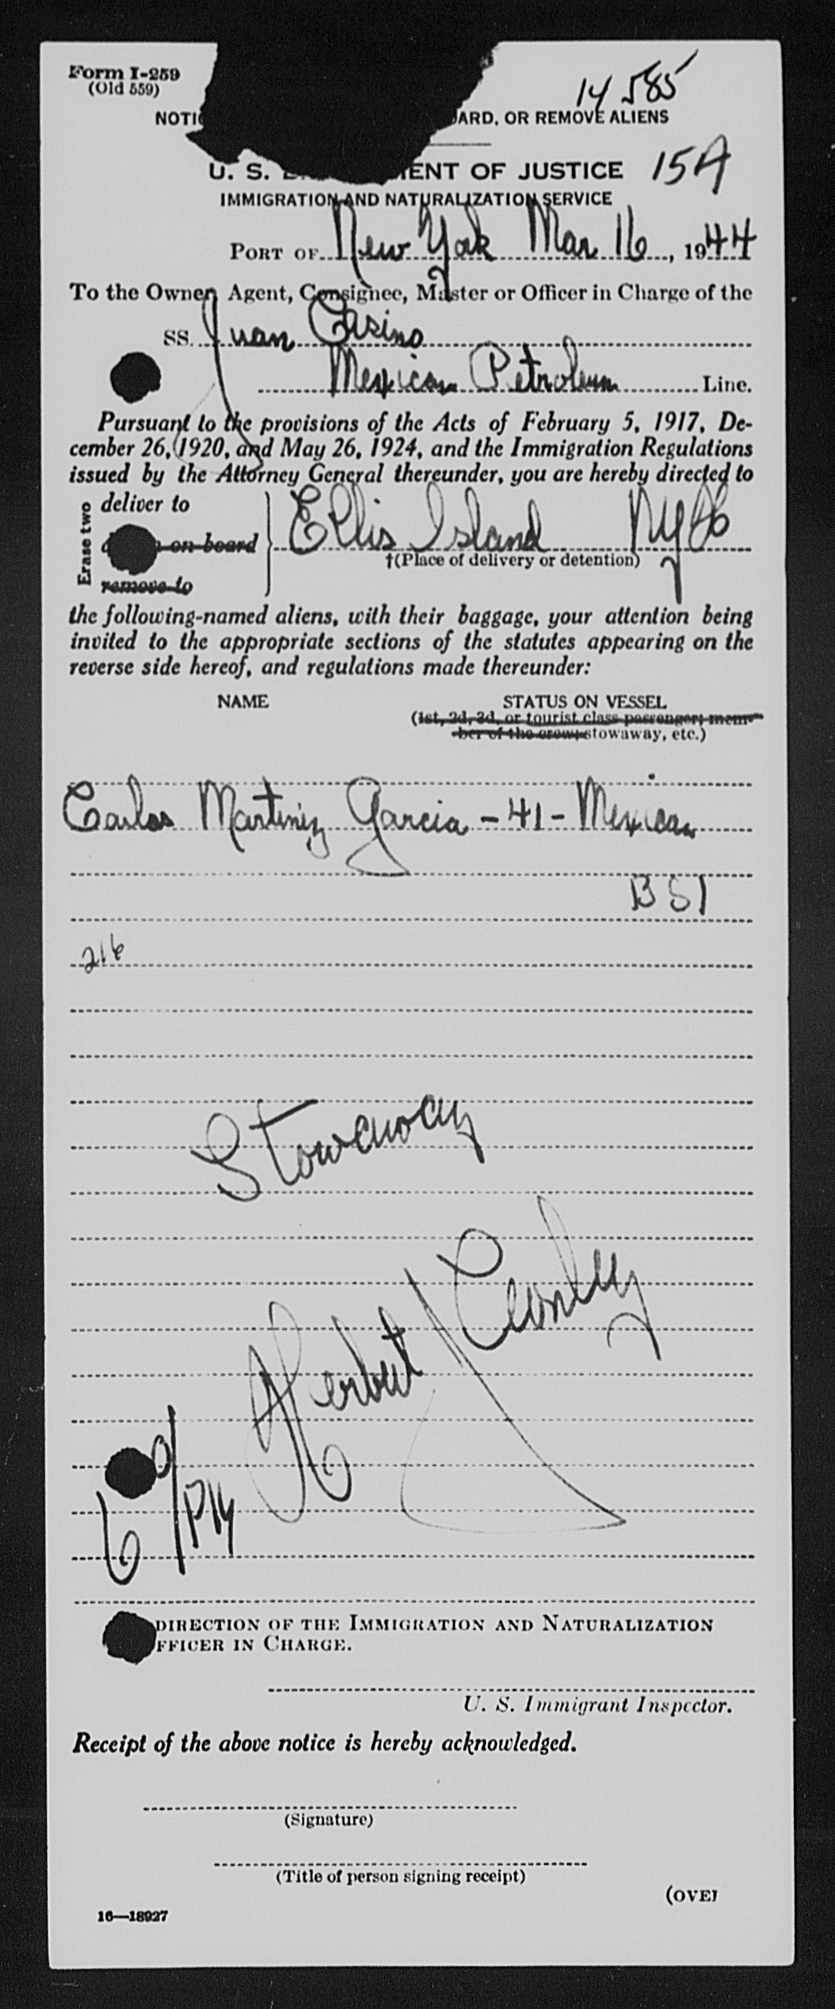 Form I-259
(Old 559)
14 585
NOTI ARD, OR REMOVE ALIENS
U. S. ENT OF JUSTICE 15A
IMMIGRATION AND NATURALIZATION SERVICE
PORT OF New York Mar 16, 1944
To the Owner, Agent, Consignee, Master or Officer in Charge of the
SS. Juan Casino
Mexican Petroleum Line.
Pursuant to the provisions of the Acts of February 5, 1917, De-
cember 26, 1920, and May 26, 1924, and the Immigration Regulations
issued by the Attorney General thereunder, you are hereby directed to
Erase two
deliver to
on board
remove to
Ellis Island NYH
†(Place of delivery or detention)
the following-named aliens, with their baggage, your attention being
invited to the appropriate sections of the statutes appearing on the
reverse side hereof, and regulations made thereunder:
NAME STATUS ON VESSEL
(1st, 2d, 3d, or tourist class passenger; mem-
ber of the crew; stowaway, etc.)
Carlos Martinez Garcia - 41 - Mexican
BSI
216
Stowaway
Herbert
6 PM
DIRECTION OF THE IMMIGRATION AND NATURALIZATION
FFICER IN CHARGE.
U. S. Immigrant Inspector.
Receipt of the above notice is hereby acknowledged.
(Signature)
(Title of person signing receipt)
(OVER
16—18927